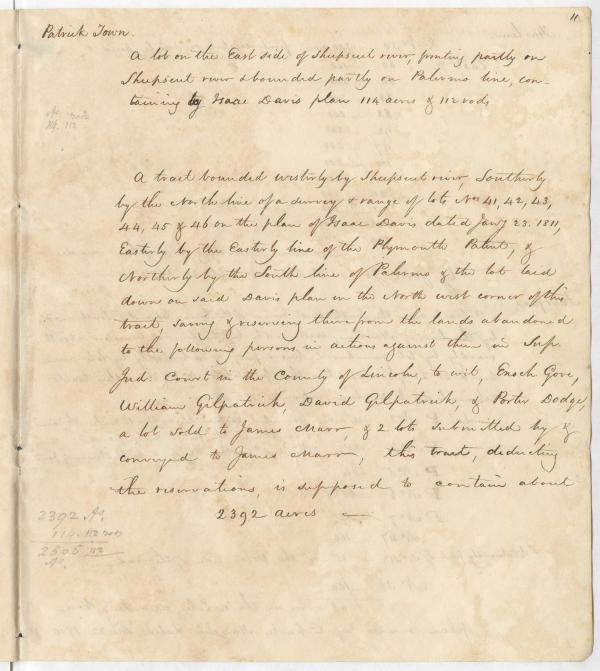 11
Patrick Town.
A lot on the East side of Sheepscut river, fronting partly on
Sheepscut river & bounded partly on Palermo line, con-
taining by Isaac Davis plan 114 acres & 112 rods
Ac. rods
114. 112
A tract bounded westerly by Sheepscut river, Southerly
by the North line of a survey & range of lots Nos 41, 42, 43,
44, 45 & 46 on the plan of Isaac Davis dated Jany 23. 1811,
Easterly by the Easterly line of the Plymouth Patent, &
Northerly by the South line of Palermo & the lot laid
down on said Davis plan in the North west corner of this
tract, saving & reserving therefrom the lands abandoned
to the following persons in actions against them in Sup.
Jud. Court in the County of Lincoln, to wit, Enoch Gove,
William Gilpatrick, David Gilpatrick, & Porter Dodge,
a lot sold to James Marr, & 2 lots submitted by &
conveyed to James Marr, this tract, deducting
the reservations, is supposed to contain about
2392 acres —
2392 As.
114. 112 rods
2506 112
As.